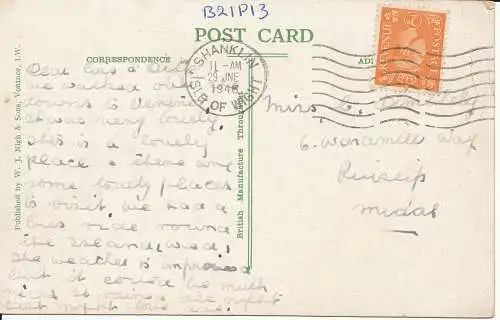 B21P13
POST CARD
CORRESPONDENCE
SHANKLIN
11 - AM
29 JNE
1948
ISLE OF WIGHT
POSTAGE
REVENUE
Published by W. J. Nigh & Sons, Ventnor, I.W.
British Manufacture Throughout
Dear
we walked over
downs to Ventnor
it was very lovely
this is a lovely
place & there are
some lovely places
to visit we had a
bus ride round
the Island (wed)
the weather is improved
but it could be much
it rained all night
last night love
Miss
6. Way
Ruislip
Middx